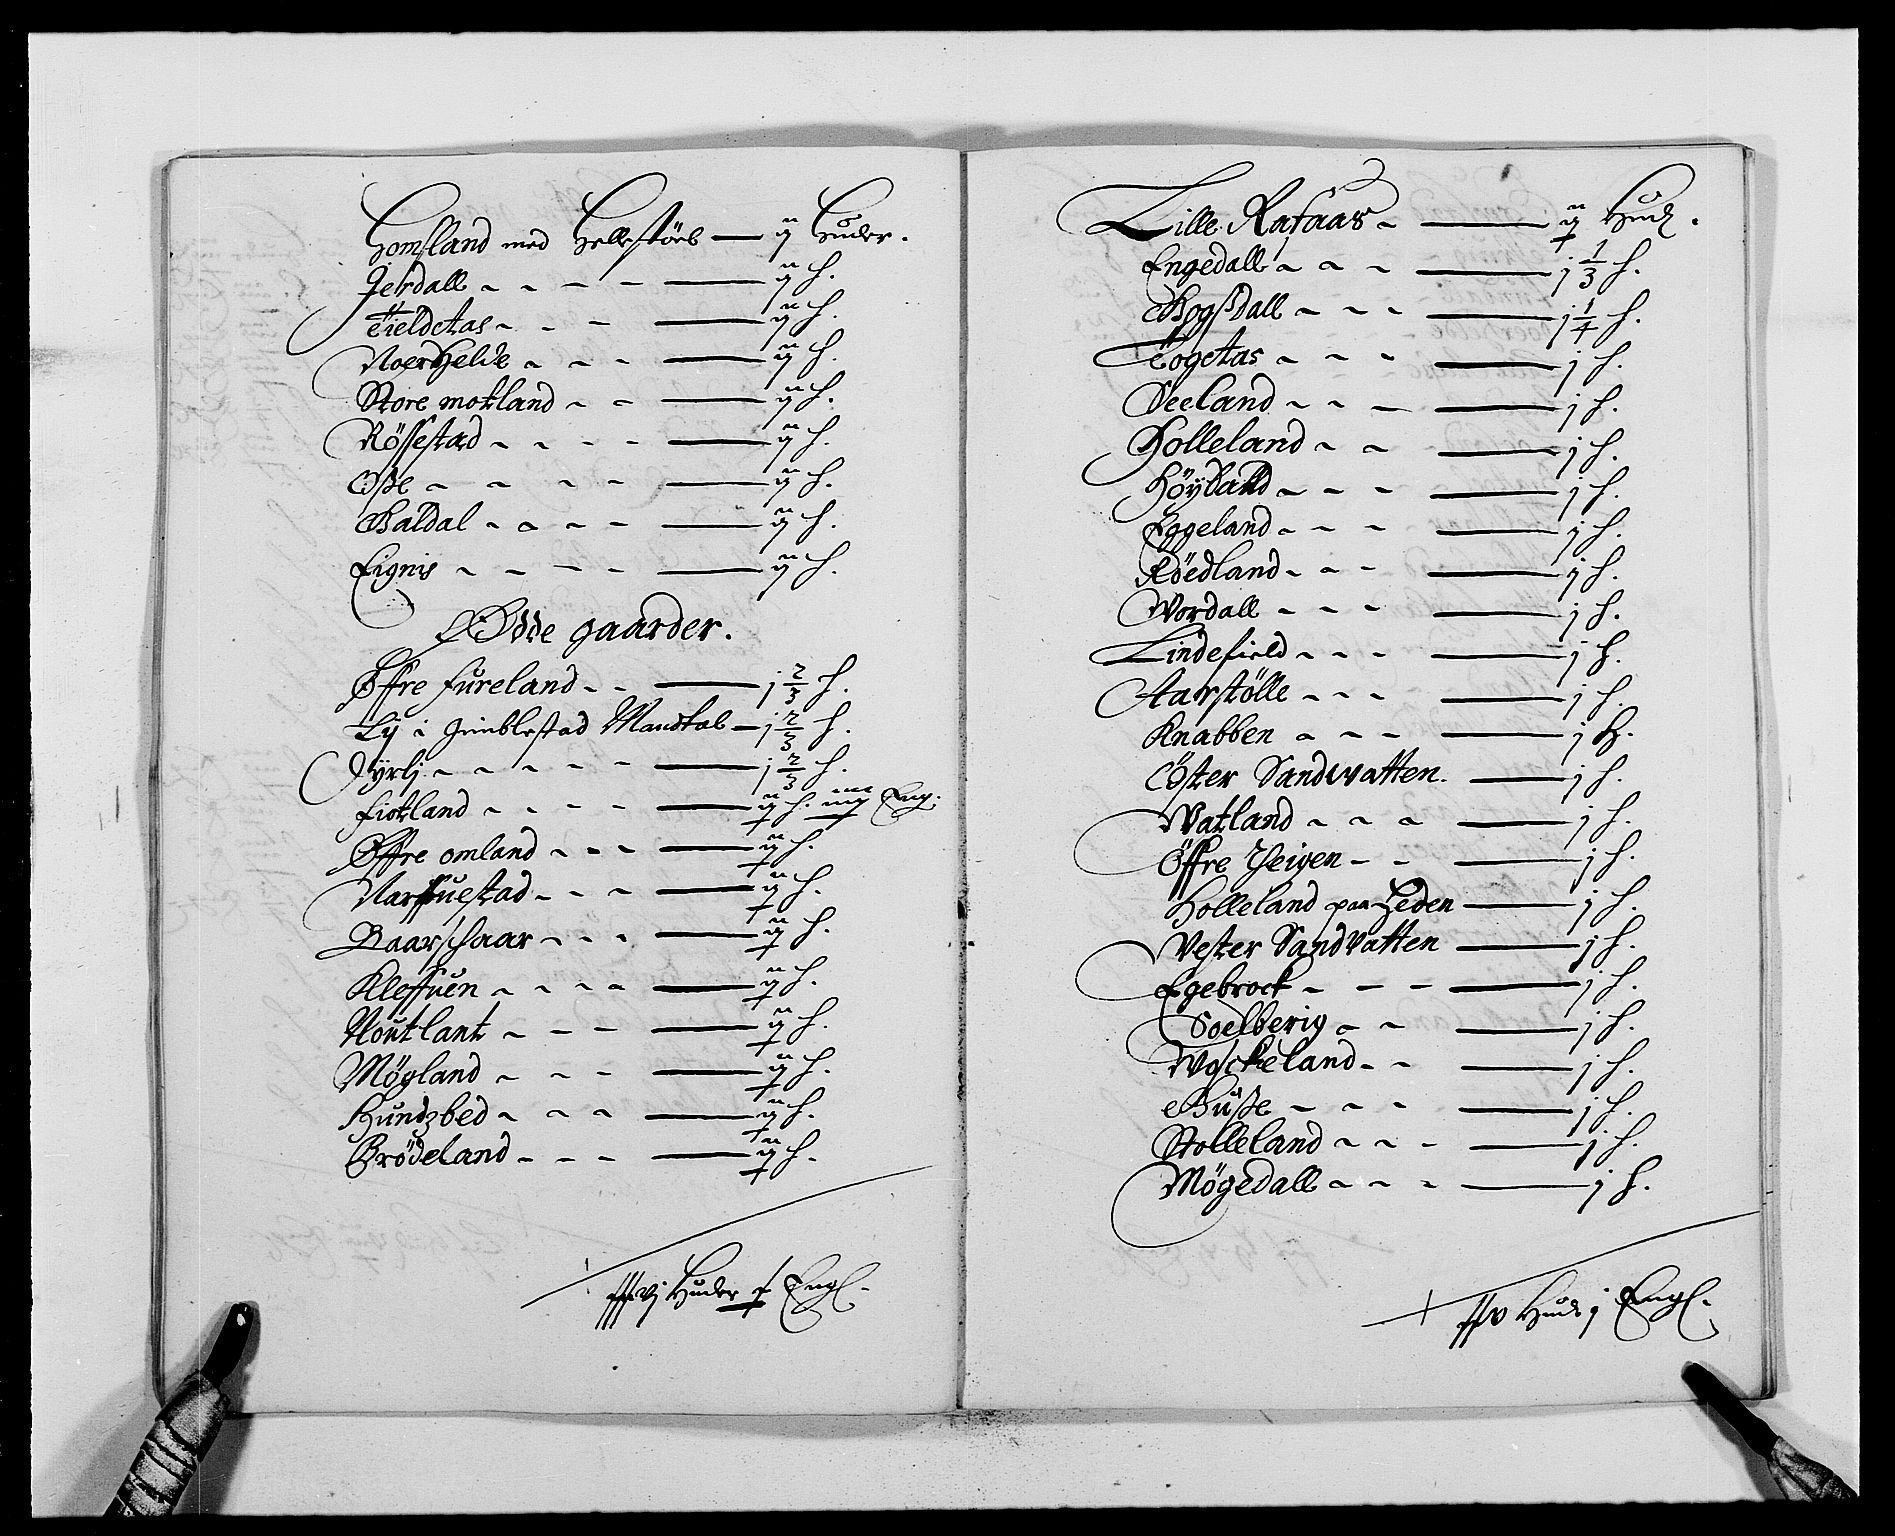 Homsland med Hellestöel — ij Huder.
Jerdall — ij h.
Tieldetas — ij h.
Noer Helde — ij h.
Store mokland — ij h.
Rössestad — ij h.
Oße — ij h.
Baldal — ij h.
Eignis — ij h.
Ödde gaarder.
Öffre fureland — j 2/3 h.
Lij i Mandtal — j 2/3 h.
Jyrlj — j 2/3 h.
fiokland — ij h. Eng:
Öffre omland — ij h.
Narfuestad — ij h.
Baarschaar — ij h.
Kleffuen — ij h.
Noutlant — ij h.
Mögland — ij h.
Hundzbed — ij h.
Brödeland — ij h.
Huder Engl.
Lille Rafaas — ij Hud.
Engedall — j 1/3 h.
Bogßdall — j 1/4 h.
Togetas — j h.
Seeland — j h.
Holleland — j h.
Höyland — j h.
Eggeland — j h.
Röedland — j h.
Wordall — j h.
Lindefield — j h.
Aarstölle — j h.
Knabben — j H.
Öster Sandwatten. — j h.
Watland — j h.
Öffre Heigen — j h.
Holleland paa Heden — j h.
Vester Sandvatten — j h.
Egebrock — j h.
Soelberig — j h.
Wosckeland — j h.
Buße — j h.
Stolleland — j h.
Mögedall — j h.
Hud j Engl.